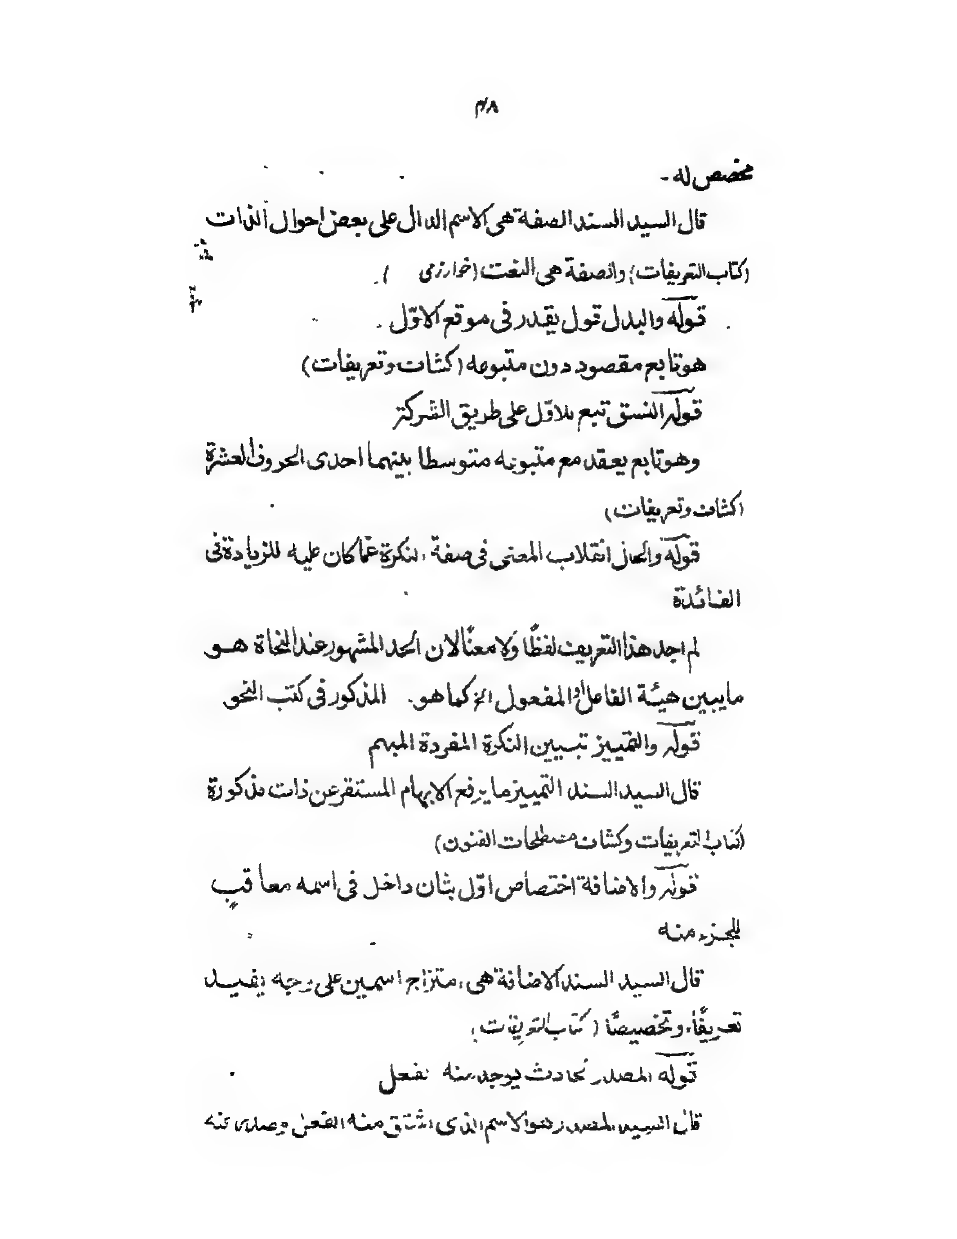 ۴۸
مخصص له -
قال السيد السند الصفة هى الاسم الدال على بعض احوال الذات
(كتاب التعريفات) والصفة هى النعت (خوارزمى )
قوله والبدل قول يقدر فى موقع الاوّل
هو تابع مقصود دون متبوعه (كشاف وتعريفات)
قوله النسق تبع للاوّل على طريق الشركة
وهو تابع يعقد مع متبوعه متوسطا بينهما احدى الحروف العشرة
(كشاف وتعريفات)
قوله والحال انقلاب المعنى فى صفة النكرة عمّا كان عليه للزيادة فى
الفائدة
لم اجد هذا التعريف لفظًا ولا معنًا لان الحد المشهور عند النحاة هو
ما يبين هيئة الفاعل أو المفعول الخ كما هو المذكور فى كتب النحو
قوله والتمييز تبيين النكرة المفردة المبهم
قال السيد السند التمييز ما يرفع الابهام المستقر عن ذات مذكورة
(كتاب التعريفات وكشاف مصطلحات الفنون)
قوله والاضافة اختصاص اوّل بثان داخل فى اسمه معاقب
للجزء منه
قال السيد السند الاضافة هى امتزاج اسمين على وجه يفيد
تعريفًا وتخصيصًا (كتاب التعريفات)
قوله المصدر حادث يوجد منه بفعل
قال السيد المصدر هو الاسم الذى اشتق منه الفعل وصدر عنه